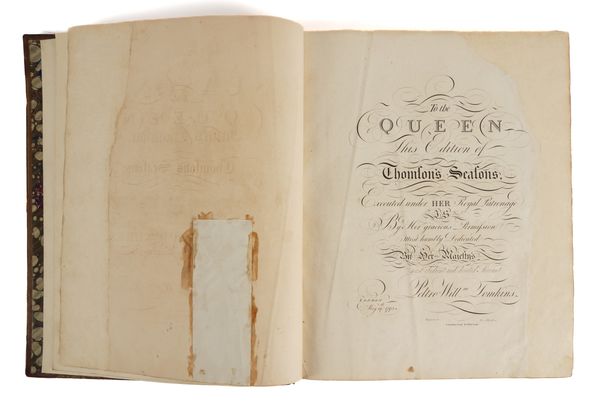 To the
QUEEN
This Edition of
Thomson's Seasons,
Executed under HER Royal Patronage
IS
By Her gracious Permission
Most humbly Dedicated
By Her Majesty's
and devoted Servant
Peltro Will.m Tomkins.
London
May 1797